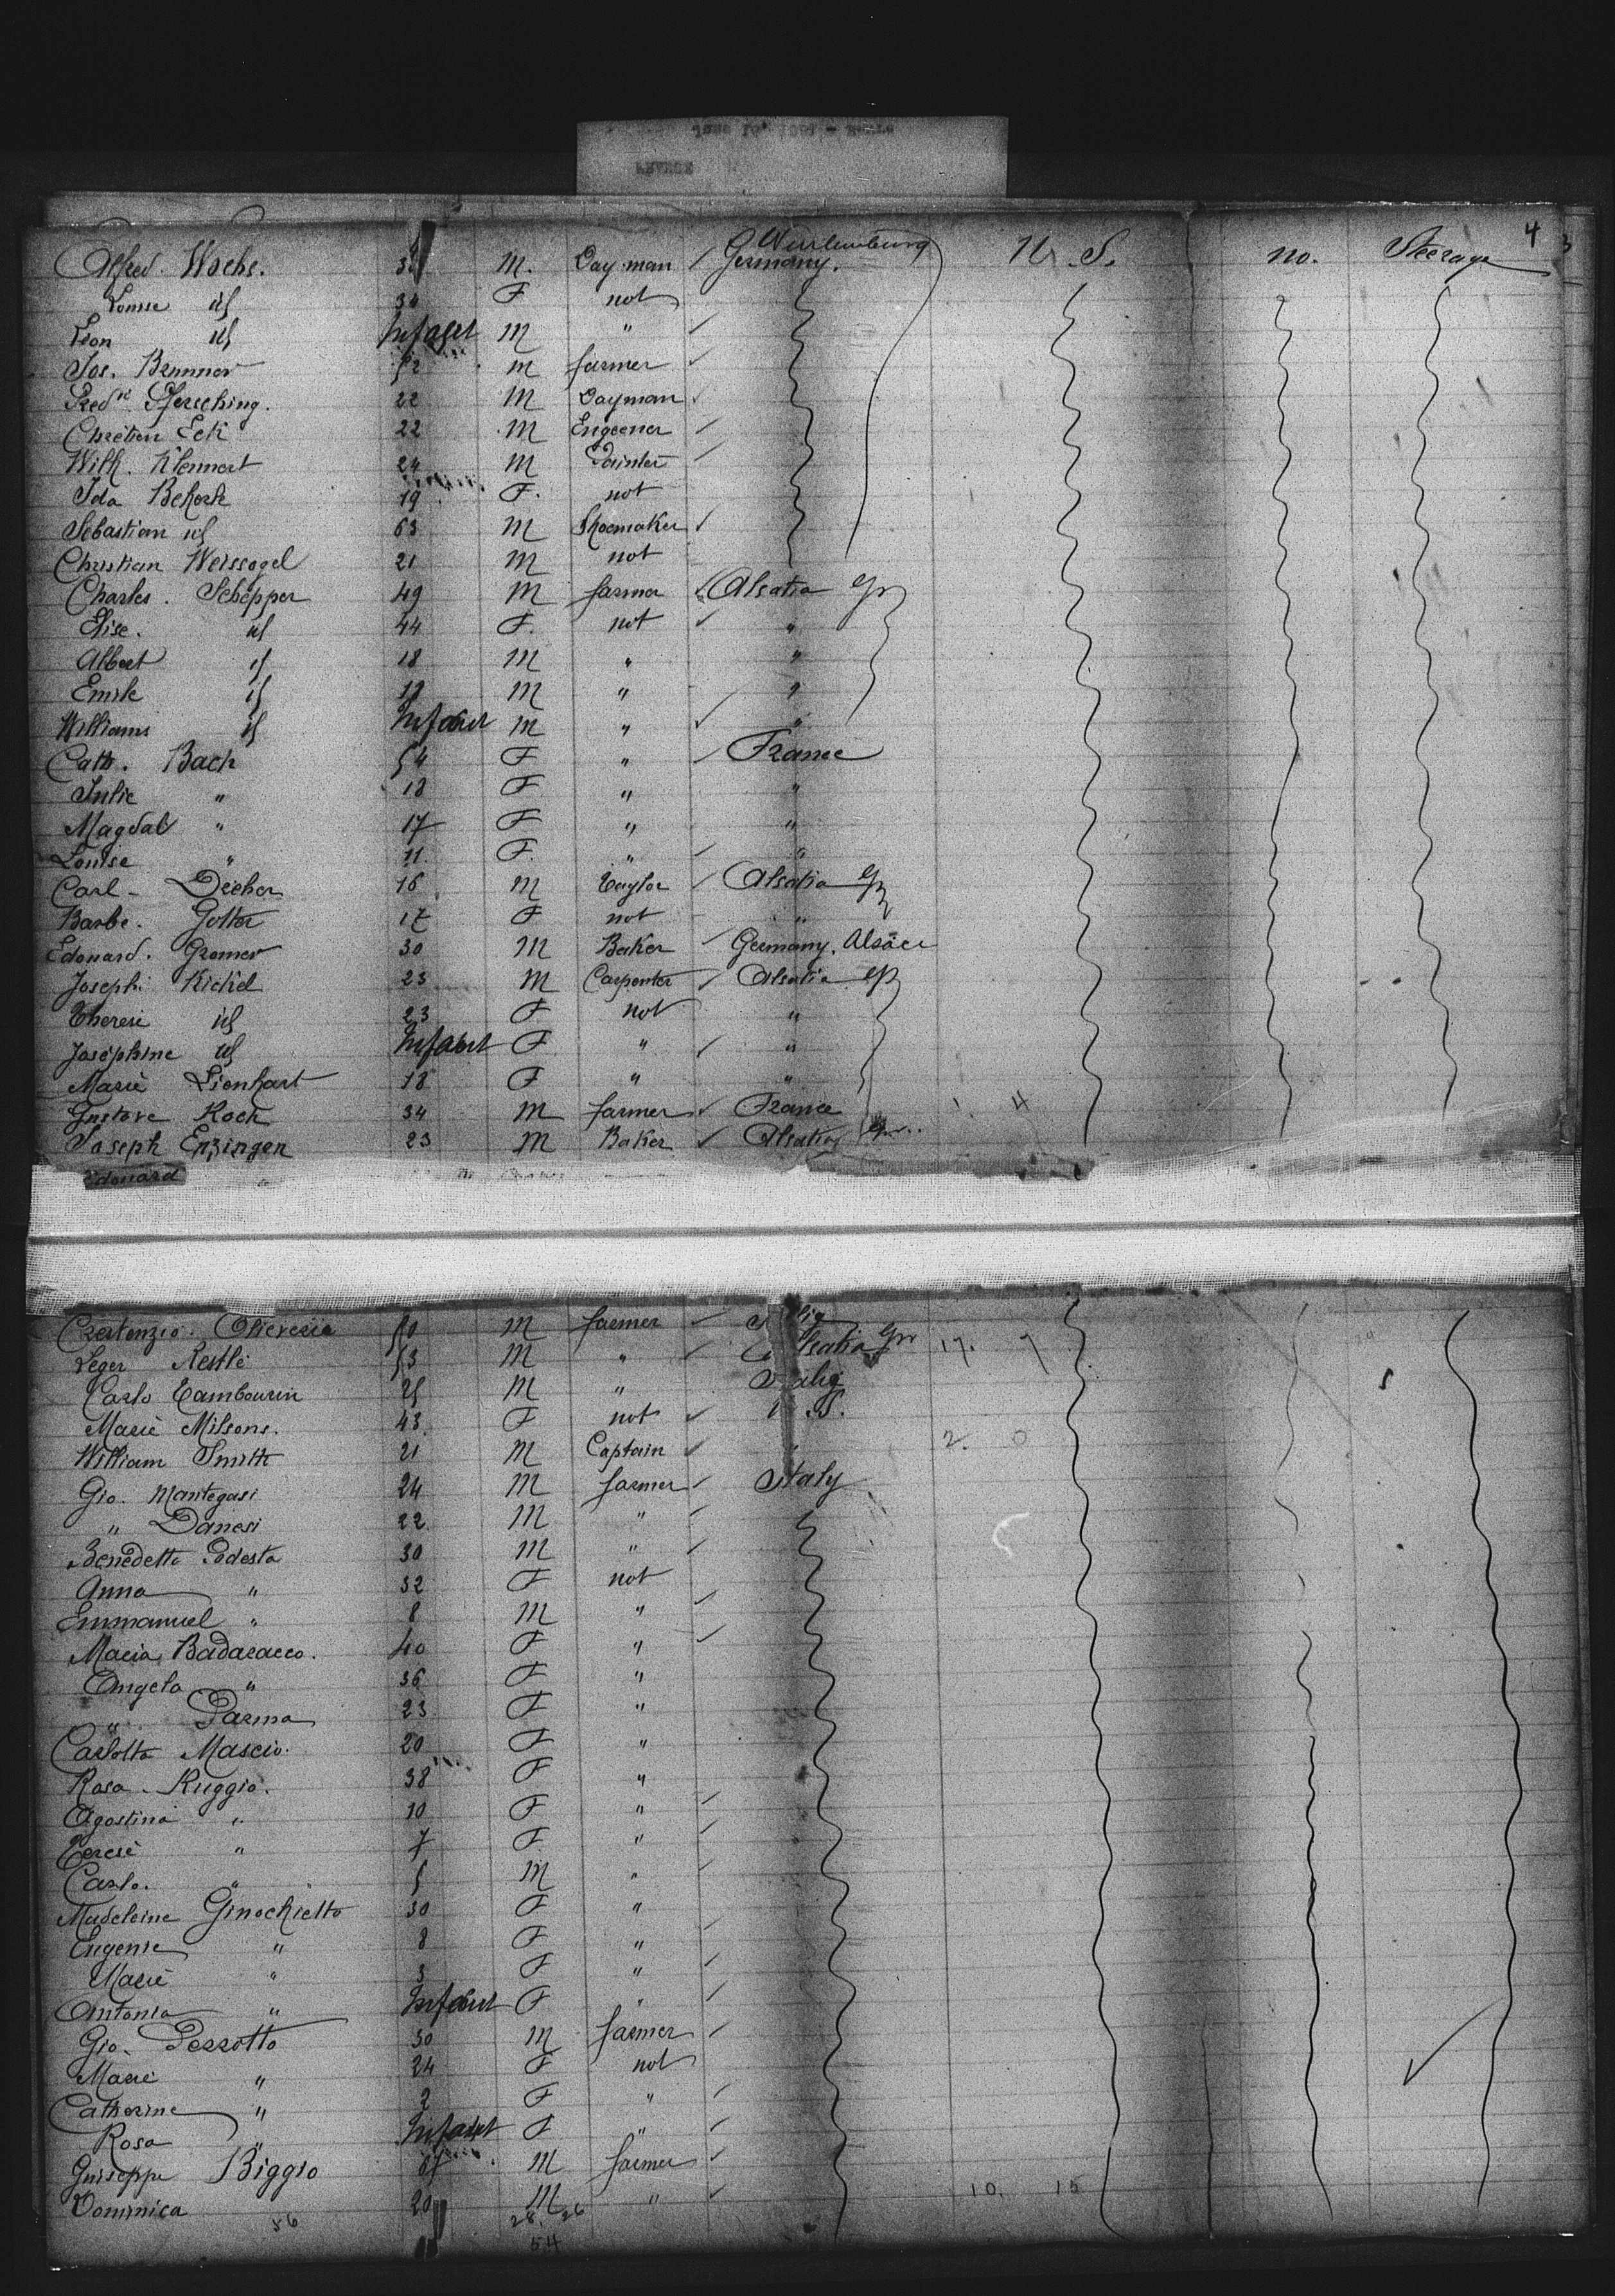 4
Alfred Wachs. M. Dayman Wurtemburg Germany. U. S. no. Steerage
Louise id 34 F not
Leon id Infant M "
Jos. Brunner 52 m farmer
Fredk Pfersching. 22 M Dayman
Chretien Eck 22 M Engeener
Wilh. Klennert 24 M Painter
Ida Bekork 19 F. not
Sebastian id 63 M Shoemaker
Christian Weissogel 21 M not
Charles. Schepper 49 M farmer Alsatia Gr
Elise. id 44 F. not "
Albert id 18 M " "
Emile id M " "
Williams id Infant m " "
Cath. Bach 54 F " France
Julie " 18 F " "
Magdal " 17 F " "
Louise " 11. F. " "
Carl - Dreher 16 M Taylor Alsatia Gr
Barbe. Gotter 17 F not "
Edouard. Gromer 30 M Baker Germany. Alsace
Joseph Kickel 23 M Carpenter Alsatia Gr
Therese id 23 F not "
Josephine id Infant F " "
Marie Lienhart 18 F " "
Gustave Koch 34 M farmer France 1. 4
Joseph Enzingen 23 M Baker Alsatia Gr
Edouard "
Crestenzio. Olivesie 50 M farmer
Leger Kestle 53 M " Alsatia Gr 17. 7
Carlo Tambourin 25 M " Italy
Marie Milsons. 43 F not U.S.
William Smith 21 M Captain " 2. 0
Gio. Mantegasi 24 M farmer Italy
" Danesi 22 M "
Benedetto Podesta 30 M "
Anna " 32 F not
Emmanuel " 8 M "
Maria Badaracco. 40 F "
Angela " 36 F "
" Parma 23 F "
Carlotta Mascio. 20 F "
Rosa. Ruggio. 38 F "
Agostina " 10 F "
Terese " 7 F. "
Carlo. " 5 M "
Madeleine Ginochietto 30 F "
Eugenie " 8 F "
Marie " 3 F "
Antonia " Infant F "
Gio. Pezzotto 30 M farmer
Marie " 24 F not
Catherine " F "
Rosa " Infant F "
Guiseppe Biggio M farmer
Dominica 20 M " 10. 15
56 28 26
54